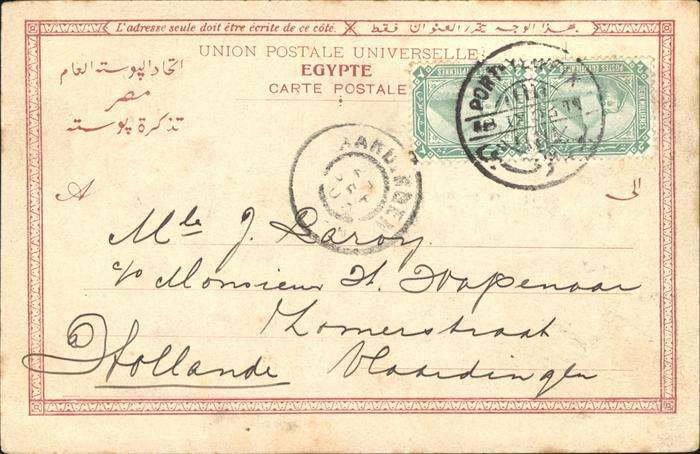 L'adresse seule doit être écrite de ce côté. هذا الوجه يحرر العنوان فقط
UNION POSTALE UNIVERSELLE
EGYPTE
CARTE POSTALE
اتحاد البوستة العام
مصر
تذكرة بوستة
PORT
A
الى
Mlle J. Laroy.
c/o Monsieur H. Wapenaar
Zomerstraat
à Hollande Vlaardingen